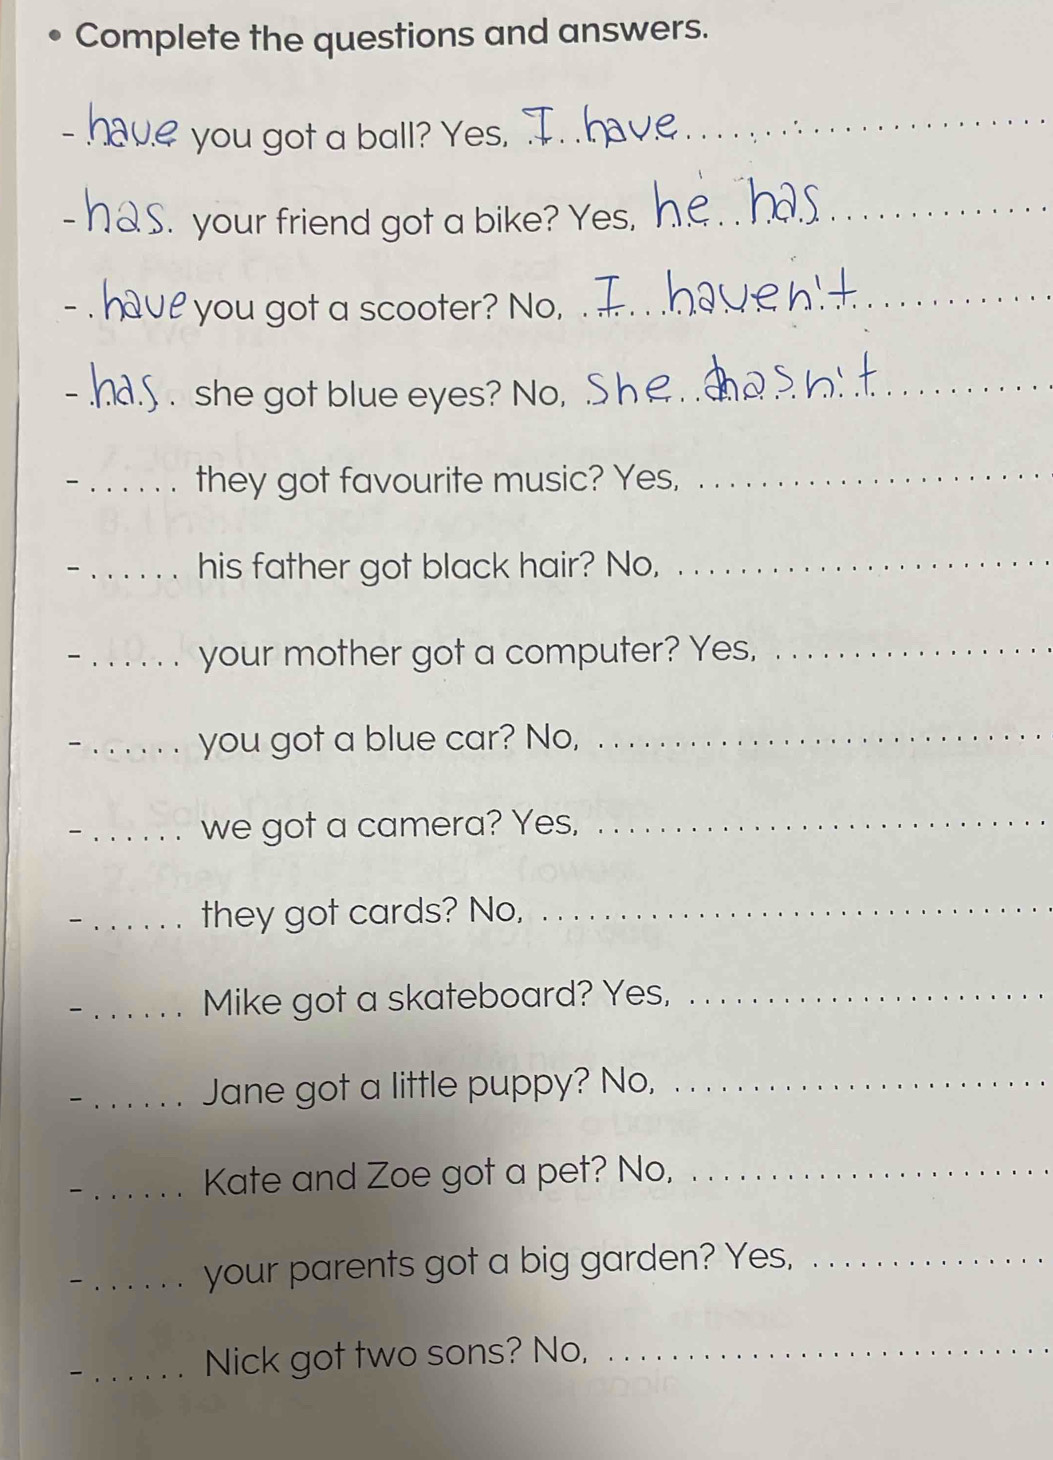 • Complete the questions and answers.
- have you got a ball? Yes, I have
- has. your friend got a bike? Yes, he has
- have you got a scooter? No, I haven't
- has she got blue eyes? No, She hasn't
- ...... they got favourite music? Yes, ......................
- ...... his father got black hair? No, ......................
- ...... your mother got a computer? Yes, ..................
- ...... you got a blue car? No, ............................
- ...... we got a camera? Yes, ............................
- ...... they got cards? No, ................................
- ...... Mike got a skateboard? Yes, ......................
- ...... Jane got a little puppy? No, ........................
- ...... Kate and Zoe got a pet? No, ......................
- ...... your parents got a big garden? Yes, ...............
- ...... Nick got two sons? No, ............................